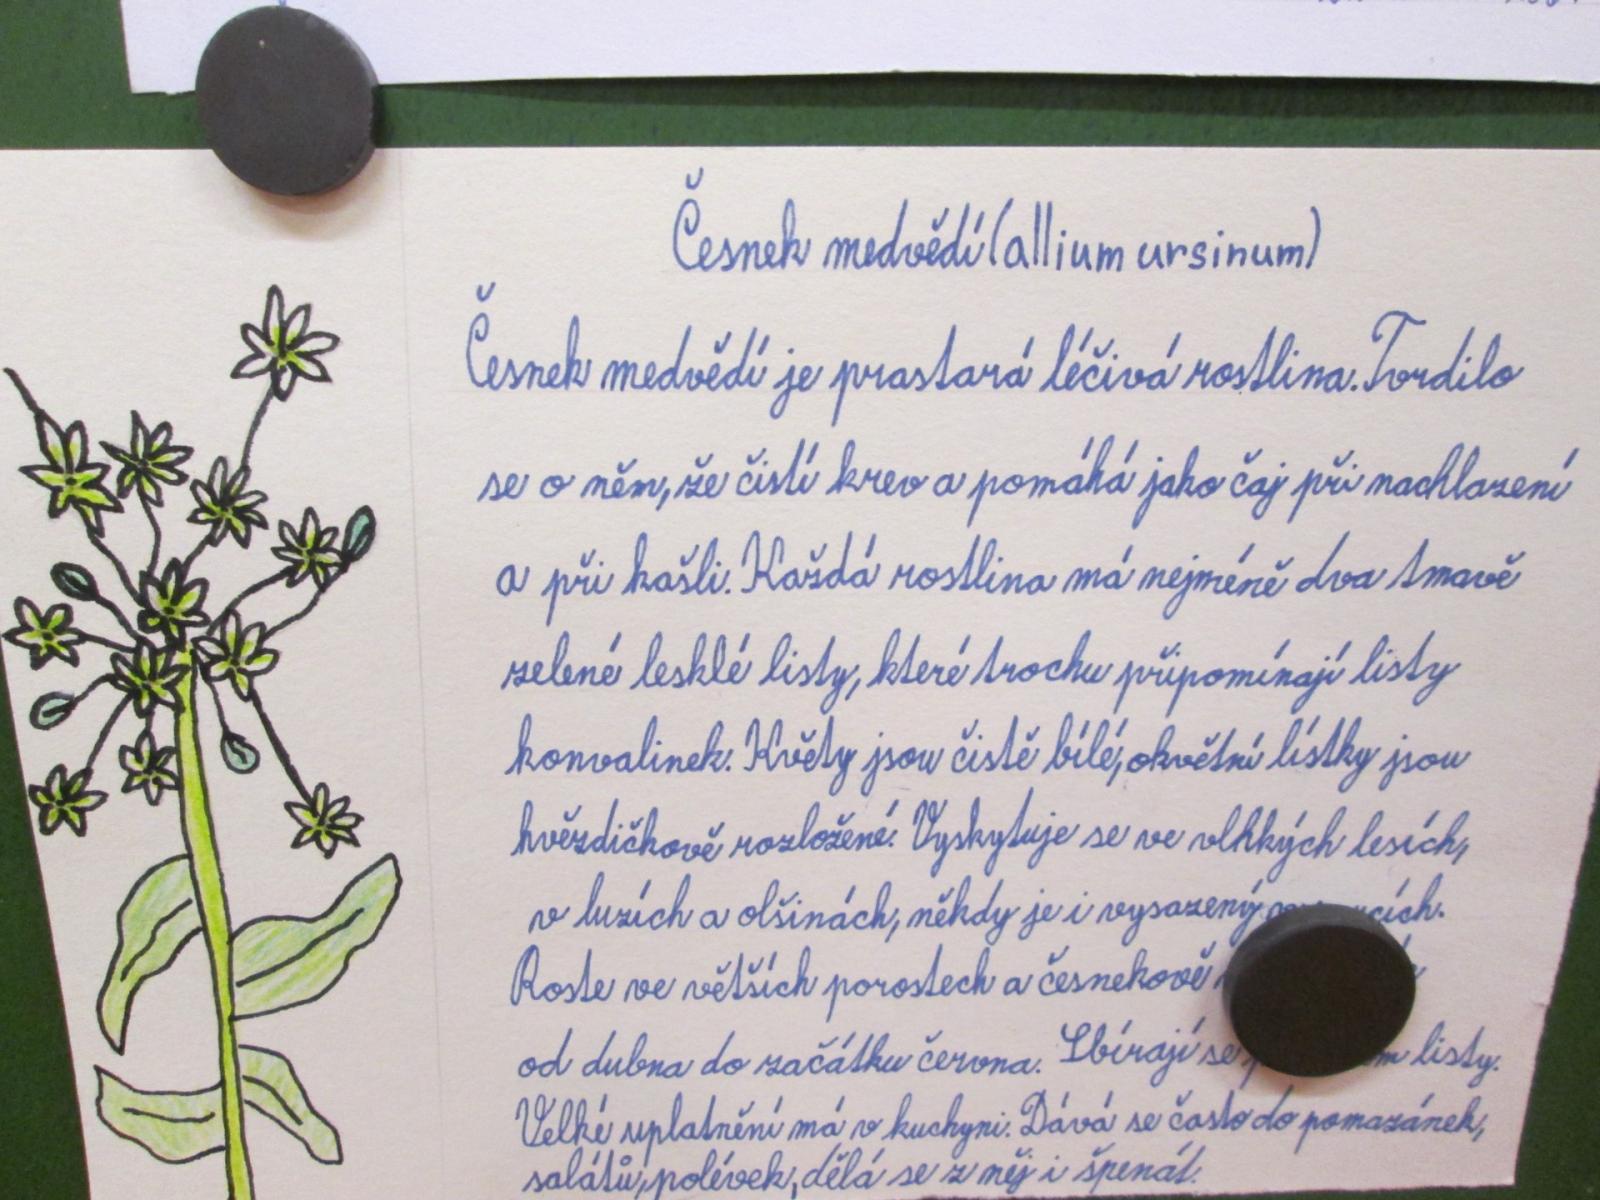 Česnek medvědí (allium ursinum)
Česnek medvědí je prastará léčivá rostlina. Tvrdilo
se o něm, že čistí krev a pomáhá jako čaj při nachlazení
a při kašli. Každá rostlina má nejméně dva tmavě
zelené lesklé listy, které trochu připomínají listy
konvalinek. Květy jsou čistě bílé, okvětní lístky jsou
hvězdičkově rozložené. Vyskytuje se ve vlhkých lesích,
v luzích a olšinách, někdy je i vysazený
Roste ve větších porostech a česnekově
od dubna do začátku června. Sbírají se listy.
Velké uplatnění má v kuchyni. Dává se často do pomazánek,
salátů, polévek, dělá se z něj i špenát.